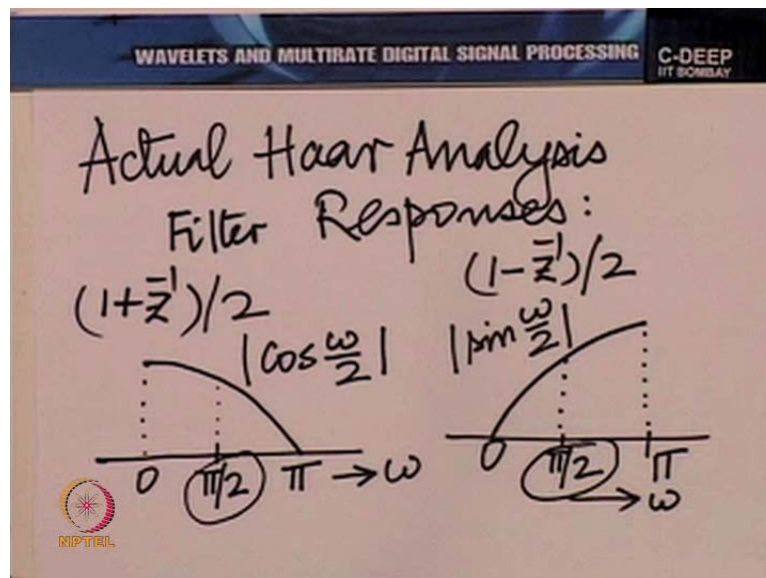 WAVELETS AND MULTIRATE DIGITAL SIGNAL PROCESSING
C-DEEP
IIT BOMBAY
Actual Haar Analysis
Filter Responses:
(1+z⁻¹)/2
(1-z⁻¹)/2
|cos ω/2|
|sin ω/2|
0 π/2 π → ω
0 π/2 π
→ ω
NPTEL